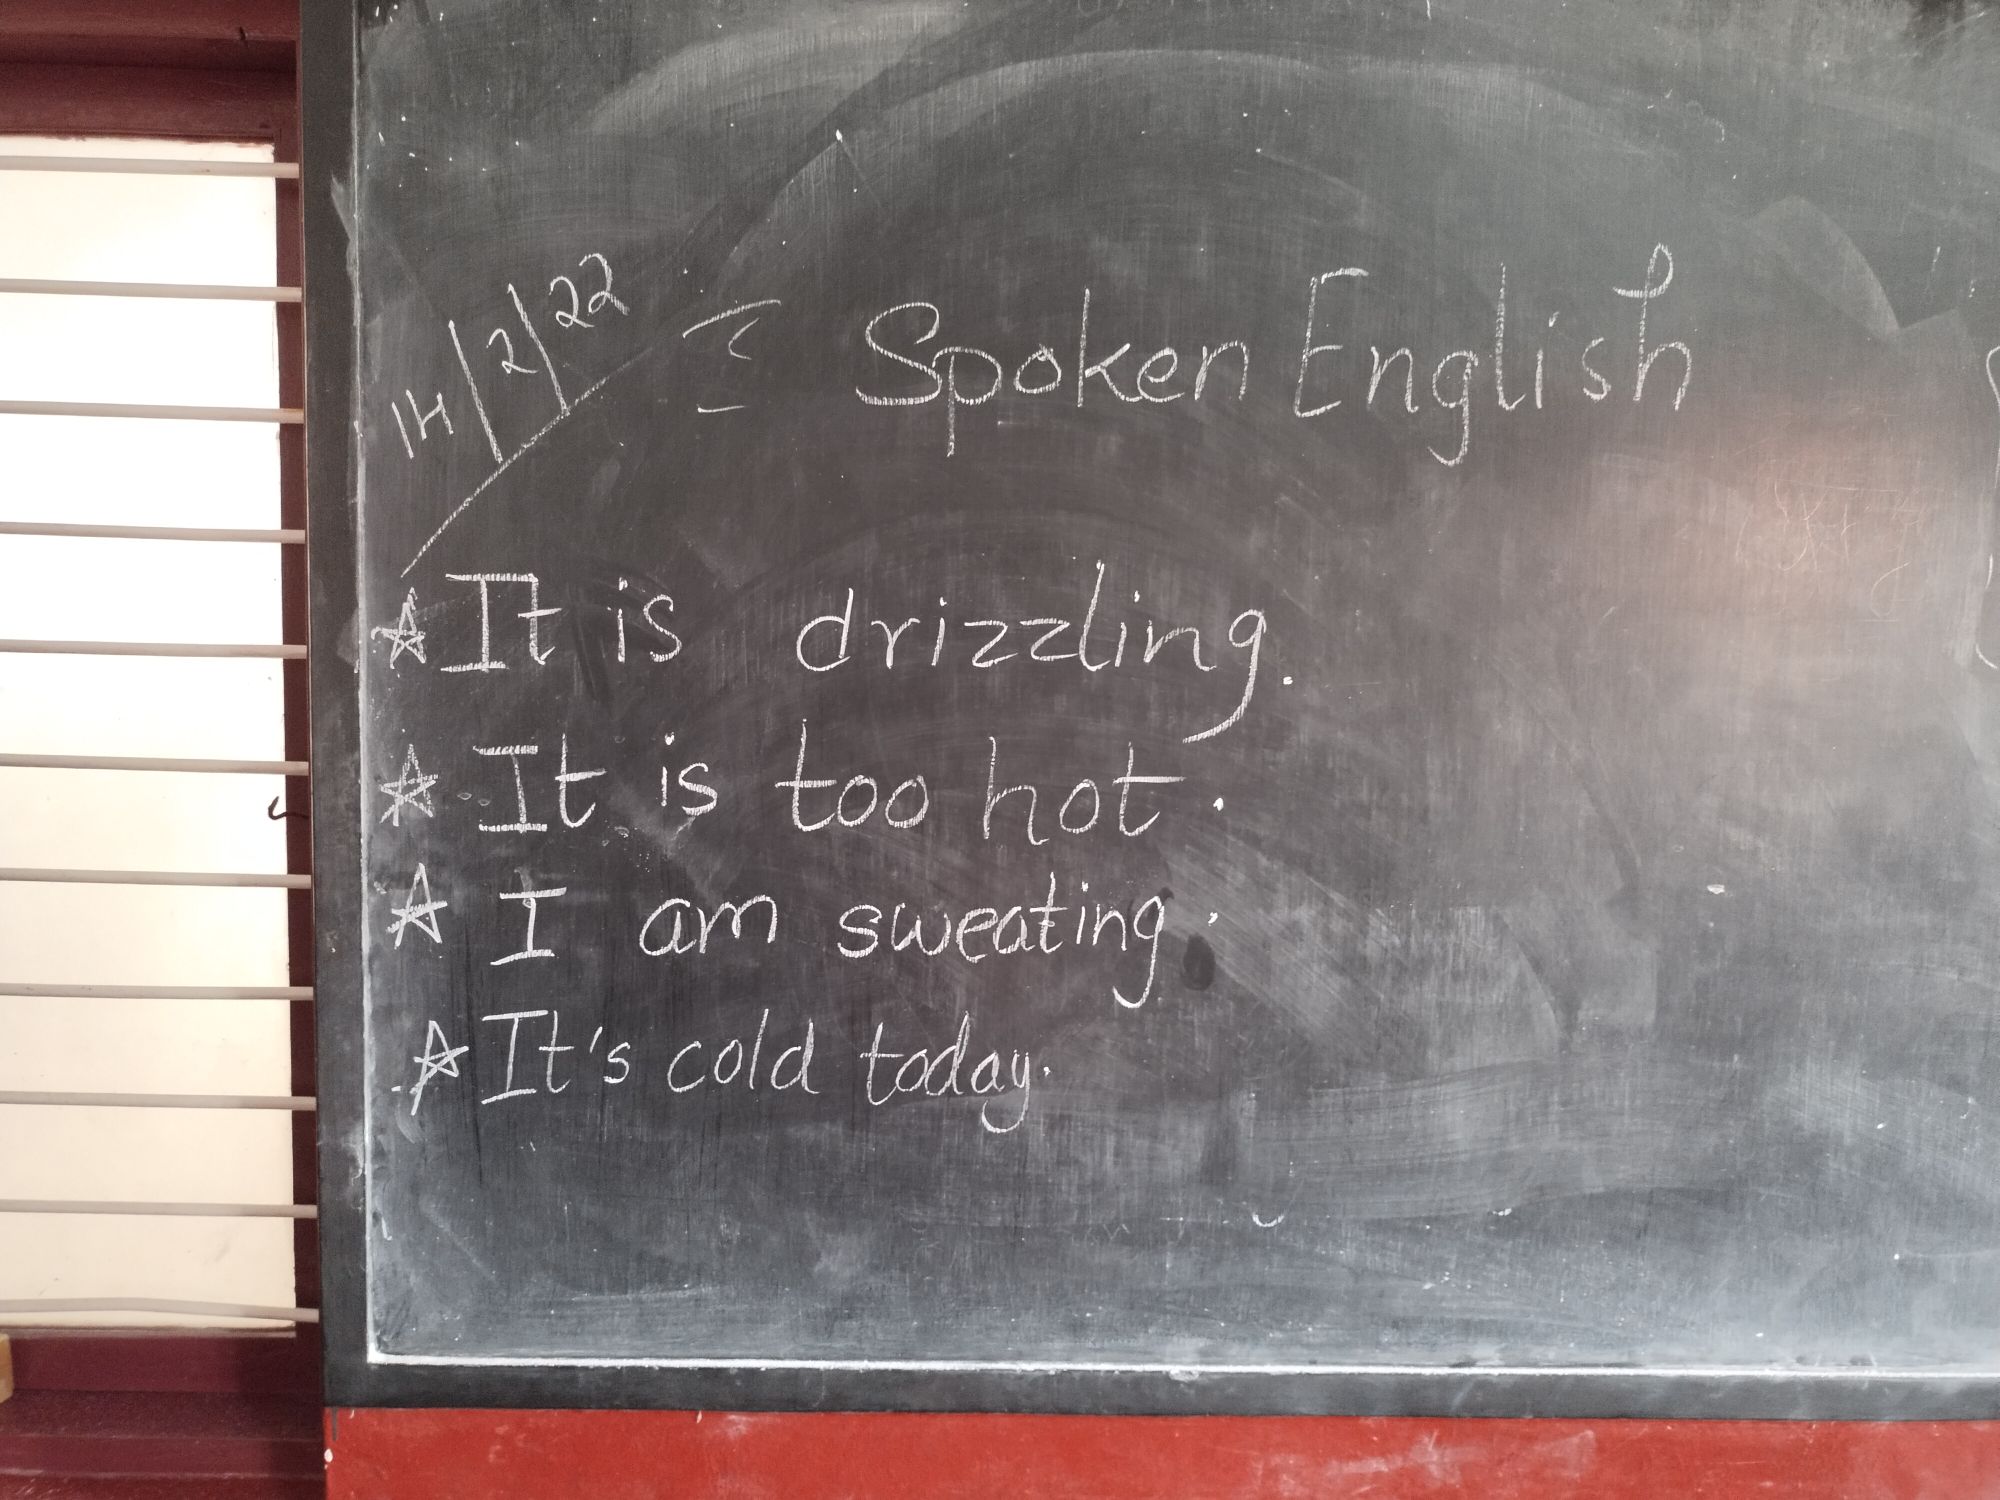 14/2/22
Spoken English
☆ It is drizzling.
☆ It is too hot.
☆ I am sweating.
☆ It's cold today.